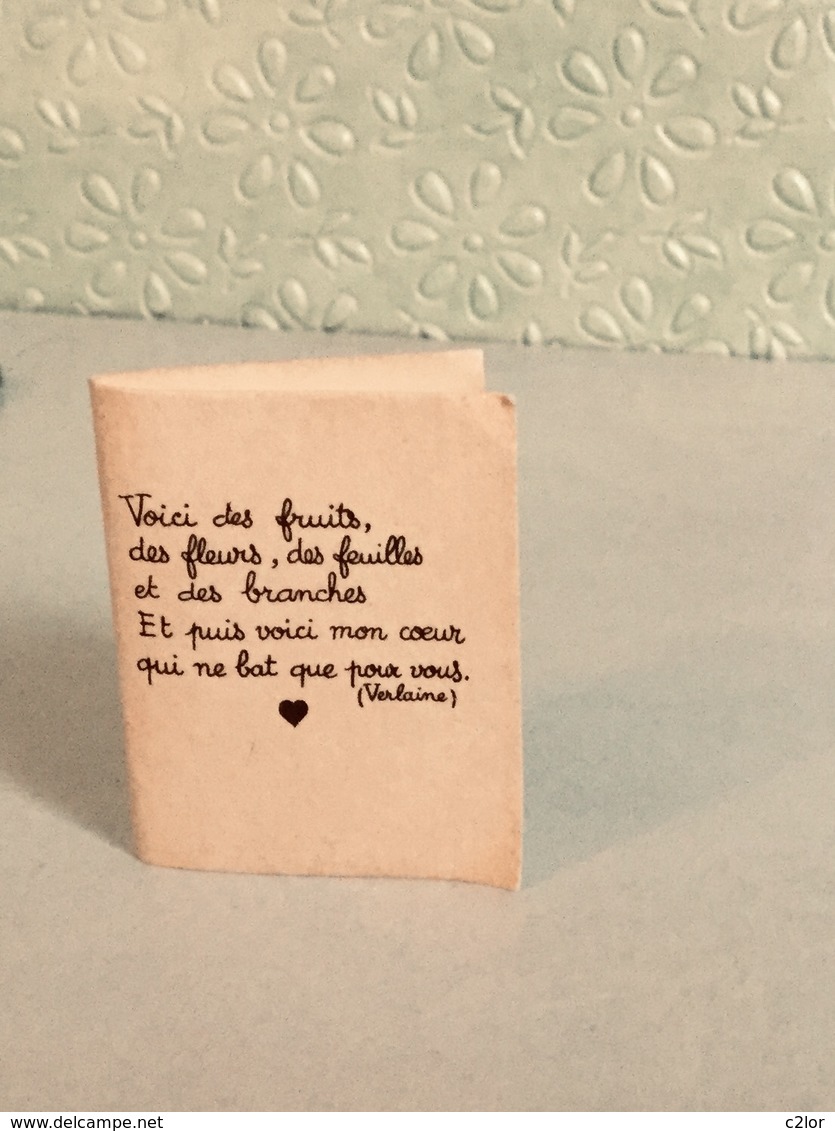 Voici des fruits,
des fleurs, des feuilles
et des branches
Et puis voici mon coeur
qui ne bat que pour vous.
(Verlaine)
delcampe.net
c2lor